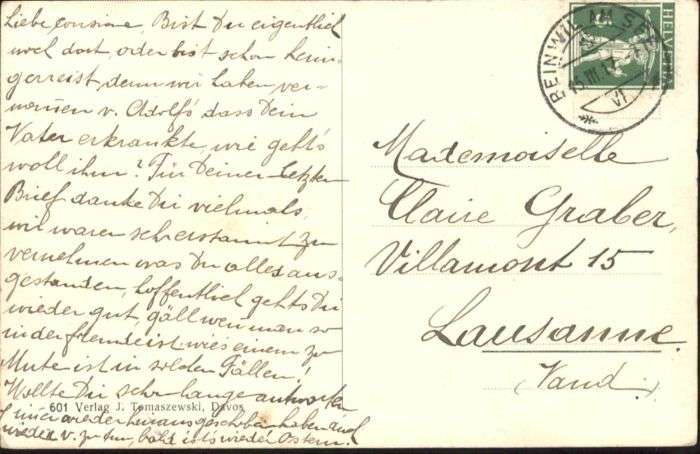 Liebe Cousine, Bist Du eigentlich
noch dort, oder bist schon heim-
gereist, denn wir haben ver-
nommen v. Adolf's dass Dein
Vater erkrankte, wie geht's
wohl ihm? Für Deinen letzten
Brief danke Dir vielmals,
wir waren sehr erstaunt zu
vernehmen was Du alles aus-
gestanden, hoffentlich geht's Dir
wieder gut, gäll wen man so
in der fremde ist wie's einem zu
Mute ist in solchen Fällen!
Wollte Dir schon lange antworten
immer wieder hinausgeschoben haben
wieder v. zu tun, bald ist's wieder Ostern!
601 Verlag J. Tomaszewski, Davos
HELVETIA
REINWIL
15.III.17
VI
Mademoiselle
Claire Graber,
Villamont 15
Lausanne.
(Vaud.)